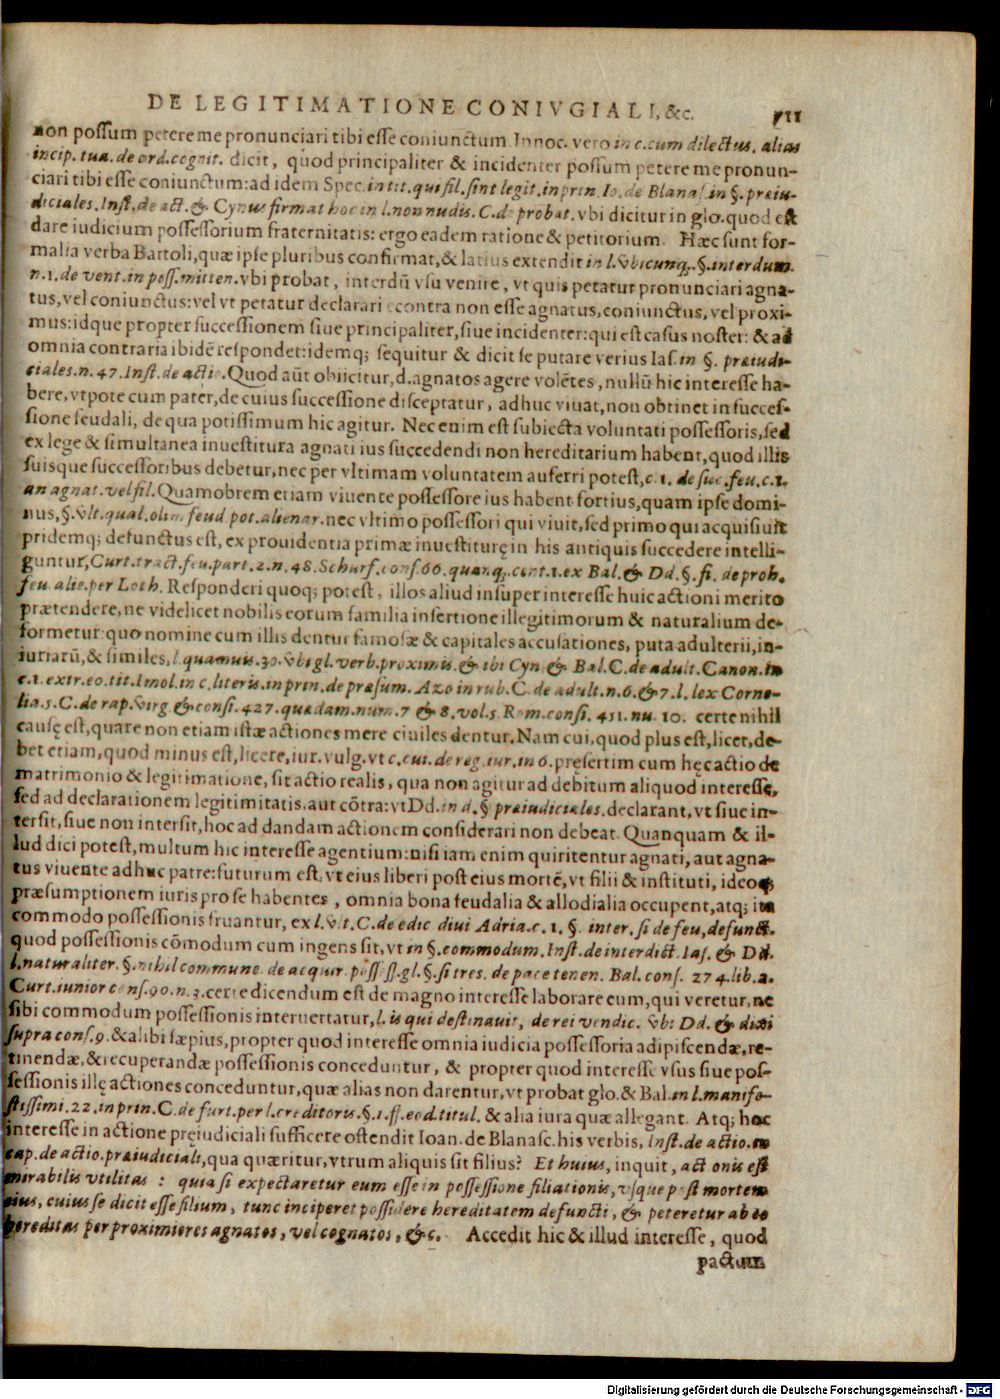 DE LEGITIMATIONE CONIVGIALI, &c.
non possum petere me pronunciari tibi esse coniunctum Innoc. vero in c. cum dilectus, alias
incip. tua. de ord. cognit. dicit, quod principaliter & incidenter possum petere me pronun-
ciari tibi esse coniunctum: ad idem Spec. in tit. qui fil. sint legit. in prin. Io. de Blanas. in §. præiu-
diciales. Inst. de act. & Cynus firmat hoc in l. non nudis. C. de probat. vbi dicitur in glo. quod est
dare iudicium possessorium fraternitatis: ergo eadem ratione & petitorium. Hæc sunt for-
malia verba Bartoli, quæ ipse pluribus confirmat, & latius extendit in l. vbicunq;. §. interdum.
n. 1. de vent. in poss. mitten. vbi probat, interdū vsu venire, vt quis petatur pronunciari agna-
tus, vel coniunctus: vel vt petatur declarari econtra non esse agnatus, coniunctus, vel proxi-
mus: idque propter successionem siue principaliter, siue incidenter: qui est casus noster: & ad
omnia contraria ibidē respondet: idemq; sequitur & dicit se putare verius Ias. in §. præiudi-
ciales. n. 47. Inst. de actio. Quod aūt obiicitur, d. agnatos agere volētes, nullū hic interesse ha-
bere, vtpote cum pater, de cuius successione disceptatur, adhuc viuat, non obtinet in succes-
sione feudali, de qua potissimum hic agitur. Nec enim est subiecta voluntati possessoris, sed
ex lege & simultanea inuestitura agnati ius succedendi non hereditarium habent, quod illis
suisque successoribus debetur, nec per vltimam voluntatem auferri potest, c. 1. de suc. feu. c. 1.
an agnat. vel fil. Quamobrem etiam viuente possessore ius habent fortius, quam ipse domi-
nus, §. vlt. qual. olim feud. pot. alienar. nec vltimo possessori qui viuit, sed primo qui acquisiuit
pridemq; defunctus est, ex prouidentia primæ inuestiturę in his antiquis succedere intelli-
guntur, Curt. tract. feu. part. 2. n. 48. Schurf. cons. 66. quanq;. cent. 1. ex Bal. & Dd. §. fi. de proh.
feu. alie. per Loth. Responderi quoq; potest, illos aliud insuper interesse huic actioni merito
prætendere, ne videlicet nobilis eorum familia insertione illegitimorum & naturalium de-
formetur: quo nomine cum illis dentur famosæ & capitales accusationes, puta adulterii, in-
iuriarū, & similes, l. quamuis. 30. vbi gl. verb. proximis. & ibi Cyn. & Bal. C. de adult. Canon. in
c. 1. extr. eo. tit. Imol. in c. literis. in prin. de præsum. Azo in rub. C. de adult. n. 6. & 7. l. lex Corne-
lia. 5. C. de rap. virg. & consi. 427. quædam. num. 7 & 8. vol. 5 Rom. consi. 451. nu. 10. certe nihil
causę est, quare non etiam istæ actiones mere ciuiles dentur. Nam cui, quod plus est, licet, de-
bet etiam, quod minus est, licere, iur. vulg. vt c. cui. de reg. iur. in 6. pręsertim cum hęc actio de
matrimonio & legitimatione, sit actio realis, qua non agitur ad debitum aliquod interesse,
sed ad declarationem legitimitatis, aut cōtra: vt Dd. in d. § præiudiciales. declarant, vt siue in-
tersit, siue non intersit, hoc ad dandam actionem considerari non debeat. Quanquam & il-
lud dici potest, multum hic interesse agentium: nisi iam enim quiritentur agnati, aut agna-
tus viuente adhuc patre: futurum est, vt eius liberi post eius mortē, vt filii & instituti, ideoq;
præsumptionem iuris pro se habentes, omnia bona feudalia & allodialia occupent, atq; ita
commodo possessionis fruantur, ex l. vlt. C. de edic. diui Adria. c. 1. §. inter. si de feu. defunct.
quod possessionis cōmodum cum ingens sit, vt in §. commodum. Inst. de interdict. Ias. & Dd.
l. naturaliter. §. nihil commune. de acquir. possess. gl. §. si tres. de pace tenen. Bal. cons. 274. lib. 2.
Curt. iunior cons. 90. n. 3. certe dicendum est de magno interesse laborare eum, qui veretur, ne
sibi commodum possessionis interuertatur, l. is qui destinauit, de rei vendic. vbi Dd. & dixi
supra cons. 9. & alibi sæpius, propter quod interesse omnia iudicia possessoria adipiscendæ, re-
tinendæ, & recuperandæ possessionis conceduntur, & propter quod interesse vsus siue pos-
sessionis illę actiones conceduntur, quæ alias non darentur, vt probat glo. & Bal. in l. manife-
stissimi. 22. in prin. C. de furt. per l. creditoris. §. 1. ff. eod. titul. & alia iura quæ allegant. Atq; hoc
interesse in actione pręiudiciali sufficere ostendit Ioan. de Blanasc. his verbis, Inst. de actio. in
cap. de actio. præiudiciali, qua quæritur, vtrum aliquis sit filius? Et huius, inquit, actionis est
mirabilis vtilitas: quia si expectaretur eum esse in possessione filiationis, vsque post mortem
eius, cuius se dicit esse filium, tunc inciperet possidere hereditatem defuncti, & peteretur ab eo
hereditas per proximiores agnatos, vel cognatos, & c. Accedit hic & illud interesse, quod
pactum
Digitalisierung gefördert durch die Deutsche Forschungsgemeinschaft - DFG